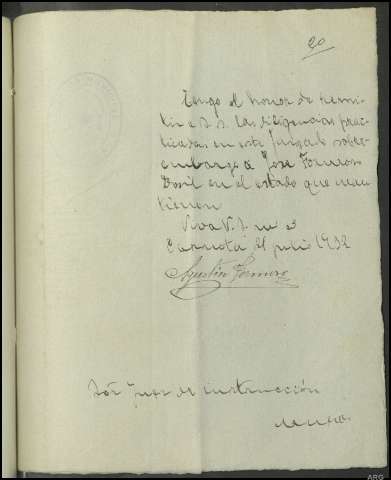 20
Tengo el honor de remi-
tir a S. S. las diligencias prac-
ticadas en este Juzgado sobre
embargo a Jose Formoso
Dosil en el estado que man-
tienen
Viva V. S. m. a.
Carnota 21 julio 1932
Agustin Formoso
Sor Juez de instrucción
Muros.
ARG